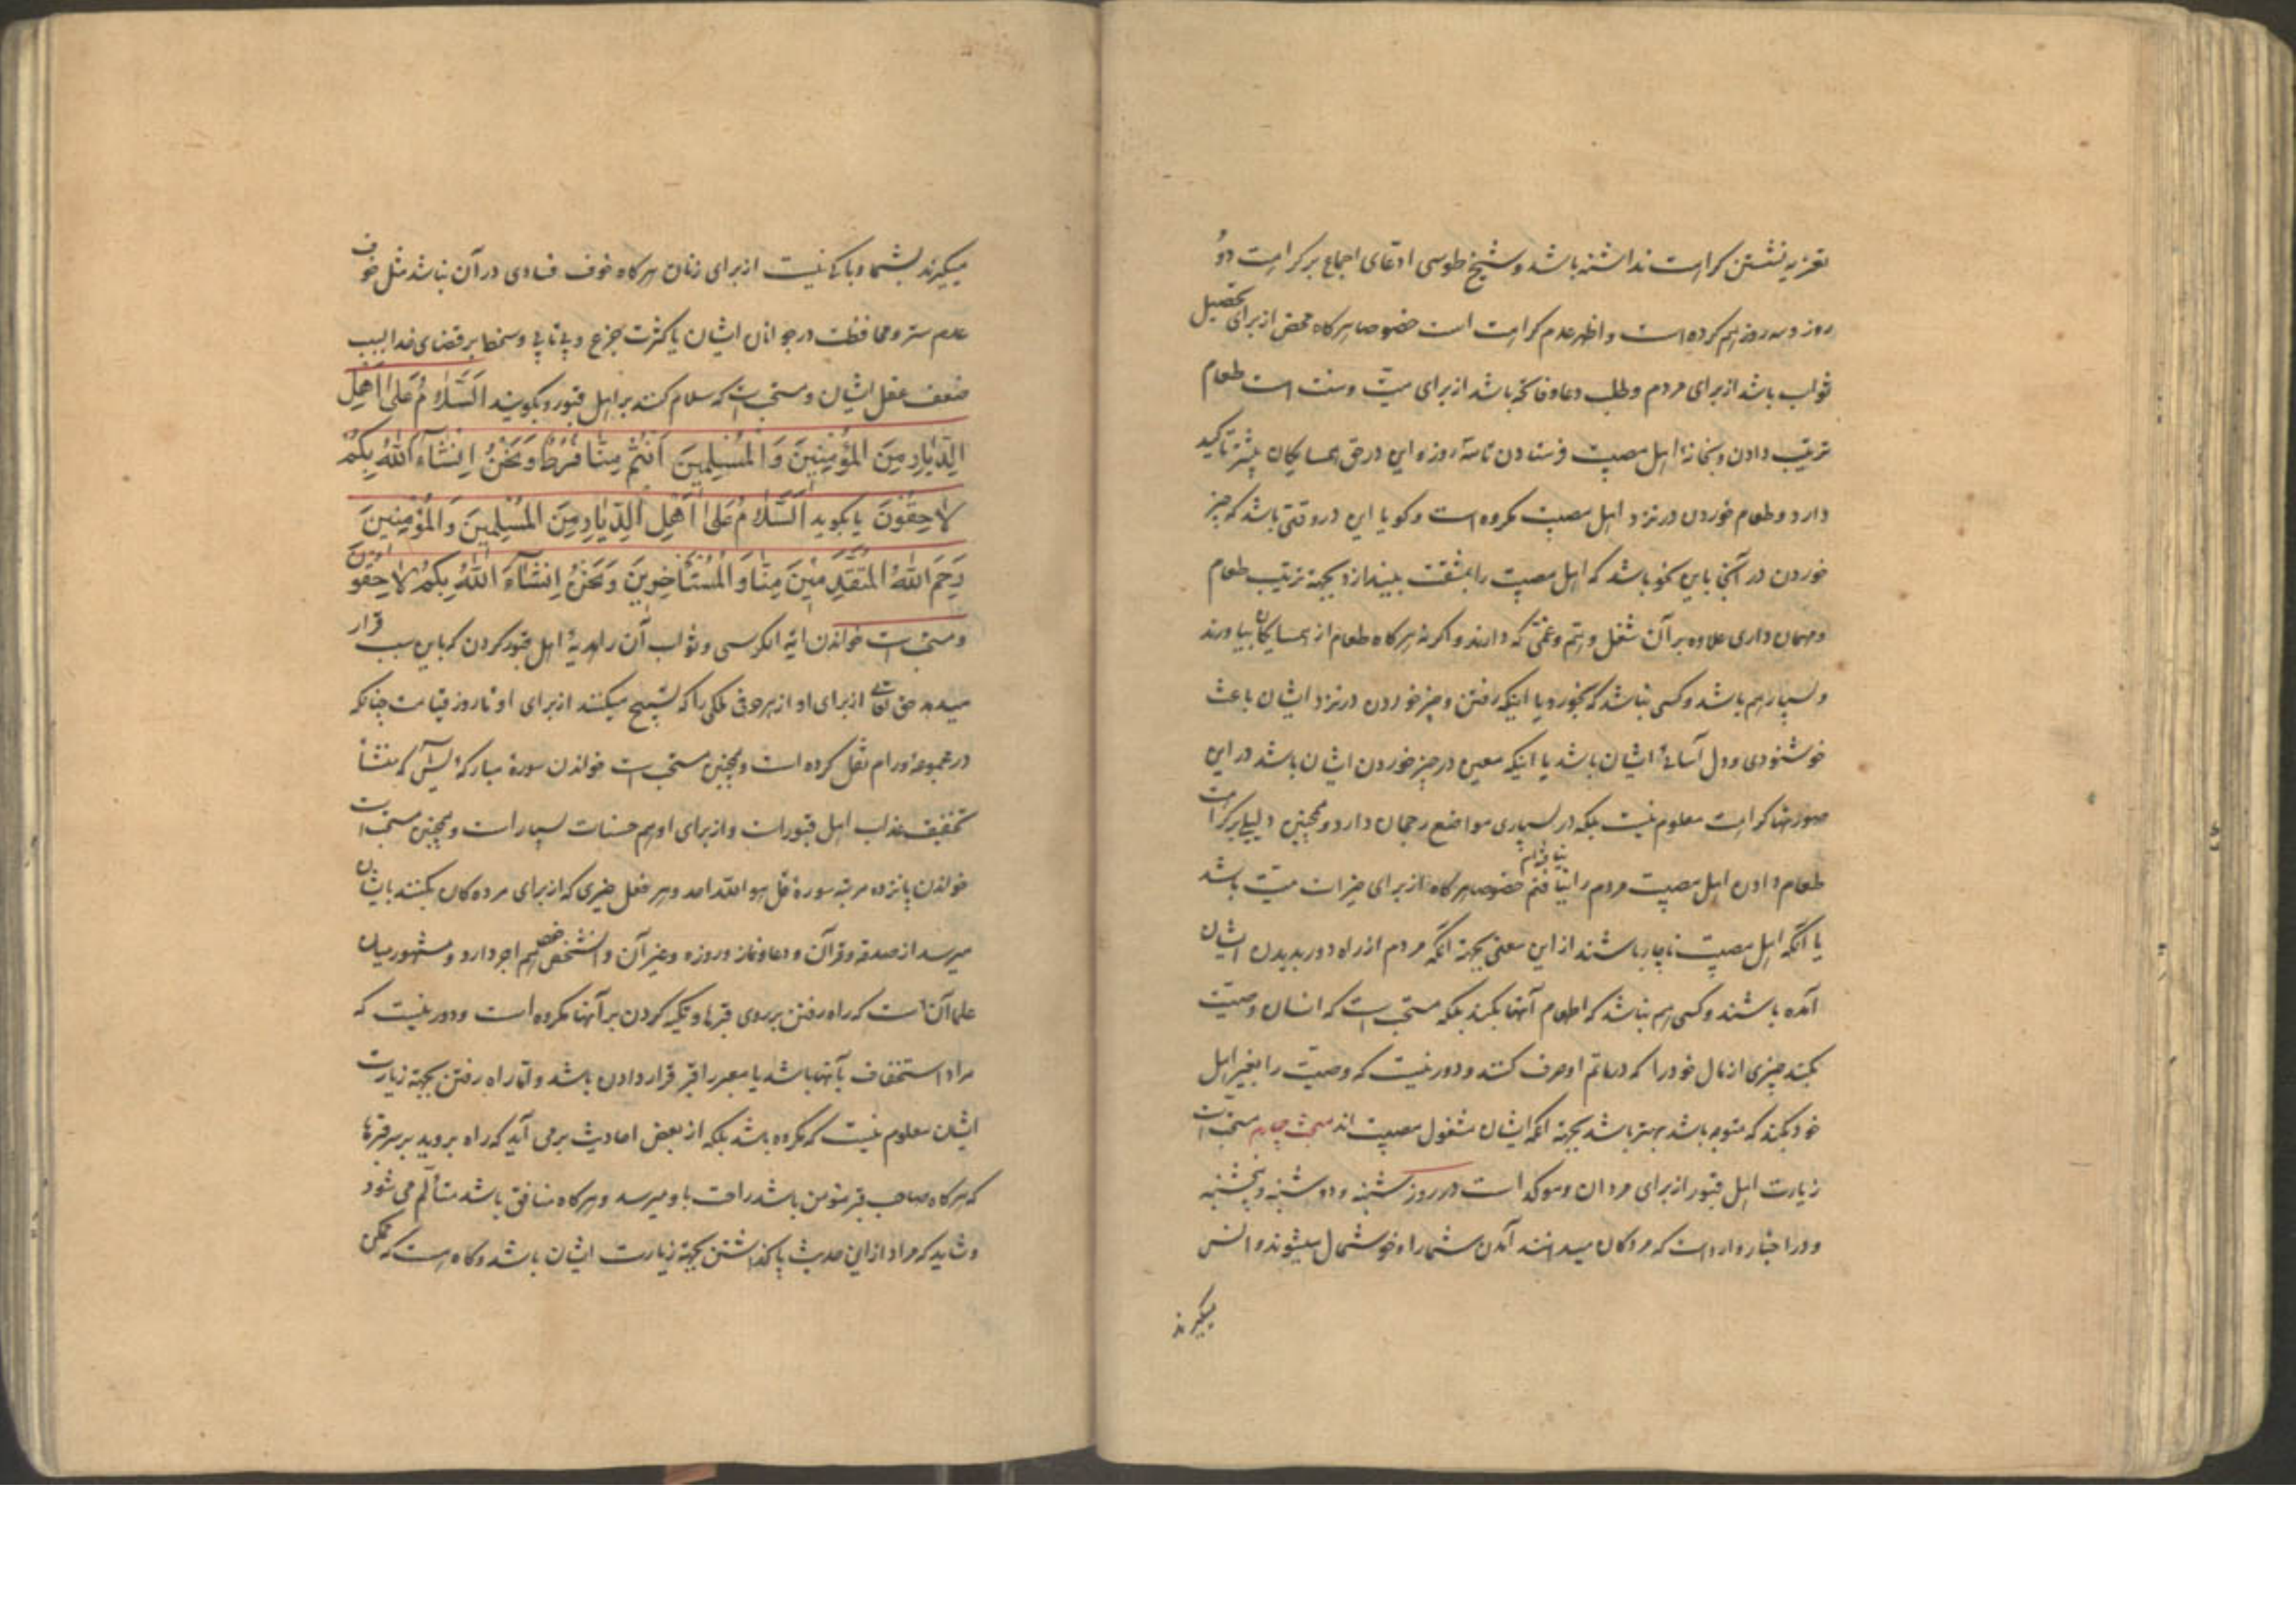 تعزیه نشستن کراهت نداشته باشد و شیخ طوسی ادعای اجماع بر کراهت دو
روز و سه روز هم کرده است و اظهر عدم کراهت است خصوصا هرکاه محض از برای تحصیل
ثواب باشد از برای مردم و طلب دعا و فاتحه باشد از برای میّت و سنت است طعام
ترتیب دادن و بخانهٔ اهل مصیبت فرستادن تا سه روز و این در حق همسایکان بیشتر تاکید
دارد و طعام خوردن در نزد اهل مصیبت مکروه است و کویا این در وقتی باشد که چیز
خوردن در آنجا باین نحو باشد که اهل مصیبت را بمشقت بیندازد بجهة ترتیب طعام
و مهمان داری علاوه بر آن شغل و هم و غمّی که دارند و اکر نه هرکاه طعام از همسایکان بیاورند
و بسیار هم باشد و کسی نباشد که بخورد یا اینکه رفتن و چیز خوردن در نزد ایشان باعث
خوشنودی و دل آسائی ایشان باشد یا اینکه معین در چیز خوردن ایشان باشد در این
صورتها کراهت معلوم نیست بلکه در بسیاری مواضع رجحان دارد و همچنین دلیلی بر کراهت
طعام دادن اهل مصیبت مردم را نیافتم خصوصا هرکاه از برای خیرات میّت باشد
یا آنکه اهل مصیبت ناچار باشند از این معنی بجهة آنکه مردم از راه دور بدیدن ایشان
آمده باشند و کسی هم نباشد که اطعام آنها بکند بلکه مستحب است که انسان وصیّت
بکند چیزی از مال خود را که در ماتم او صرف کنند و دور نیست که وصیّت را بغیر اهل
خود بکند که متوجه باشد بهتر باشد بجهة آنکه ایشان مشغول مصیبت اند مبحث چهارم مستحب است
زیارت اهل قبور از برای مردان و موکد است در روز شنبه و دوشنبه و پنجشنبه
و در اخبار وارد است که مردکان میدانند آمدن شما را و خوشحال میشوند و انس
میکیرند
میکیرند بشما و باکی نیست از برای زنان هرکاه خوف فسادی در آن نباشد مثل خوف
عدم ستر و محافظت در جوانان ایشان یا کثرت جزع و بی تابی و سخط بر قضای خدا بسبب
ضعف عقل ایشان و مستحب است که سلام کنند بر اهل قبور و بکویند اَلسَّلامُ عَلیٰ اَهْلِ
الدِّیٰارِ مِنَ المُؤْمِنِینَ وَالْمُسْلِمِینَ اَنْتُمْ مِنّٰا فَرَطٌ وَنَحْنُ اِنْشَآءَ اللّٰهُ بِکُمْ
لاٰحِقُونَ یا بکوید اَلسَّلاٰمُ عَلیٰ اَهْلِ الدِّیٰارِ مِنَ المُسْلِمِینَ وَالْمُؤْمِنِینَ
رَحِمَ اللّٰهُ المُتَقَدِّمِینَ مِنّٰا وَالْمُسْتَأْخِرِینَ وَنَحْنُ اِنْشَآءَ اللّٰهُ بِکُمْ لاٰحِقُونَ
و مستحب است خواندن آیة الکرسی و ثواب آن را هدیهٔ اهل قبور کردن که باین سبب قرار
میدهد حق تعالی از برای او از هر حرفی ملکی را که تسبیح میکند از برای او تا روز قیامت چنانکه
در مجموعه ورام نقل کرده است و همچنین مستحب است خواندن سورهٔ مبارکهٔ یس که منشأ
تخفیف عذاب اهل قبور است و از برای او هم حسنات بسیار است و همچنین مستحب است
خواندن پانزده مرتبه سورهٔ قل هو الله احد و هر فعل خیری که از برای مرده کان بکنند بایشان
میرسد از صدقه و قرآن و دعا و نماز و روزه و غیر آن و آنشخص هم اجر دارد و مشهور میان
علما آن است که راه رفتن بر روی قبرها و تکیه کردن بر آنها مکروه است و دور نیست که
مراد استخفاف بآنها باشد یا معبر را قبر قرار دادن باشد و امّا راه رفتن بجهة زیارت
ایشان معلوم نیست که مکروه باشد بلکه از بعض احادیث بر می آید که راه بروید بر سر قبرها
که هرکاه صاحب قبر مؤمن باشد راحت باو میرسد و هرکاه منافق باشد متألّم می شود
و شاید که مراد از این حدیث پا کذاشتن بجهة زیارت ایشان باشد و کاه هست که ممکن